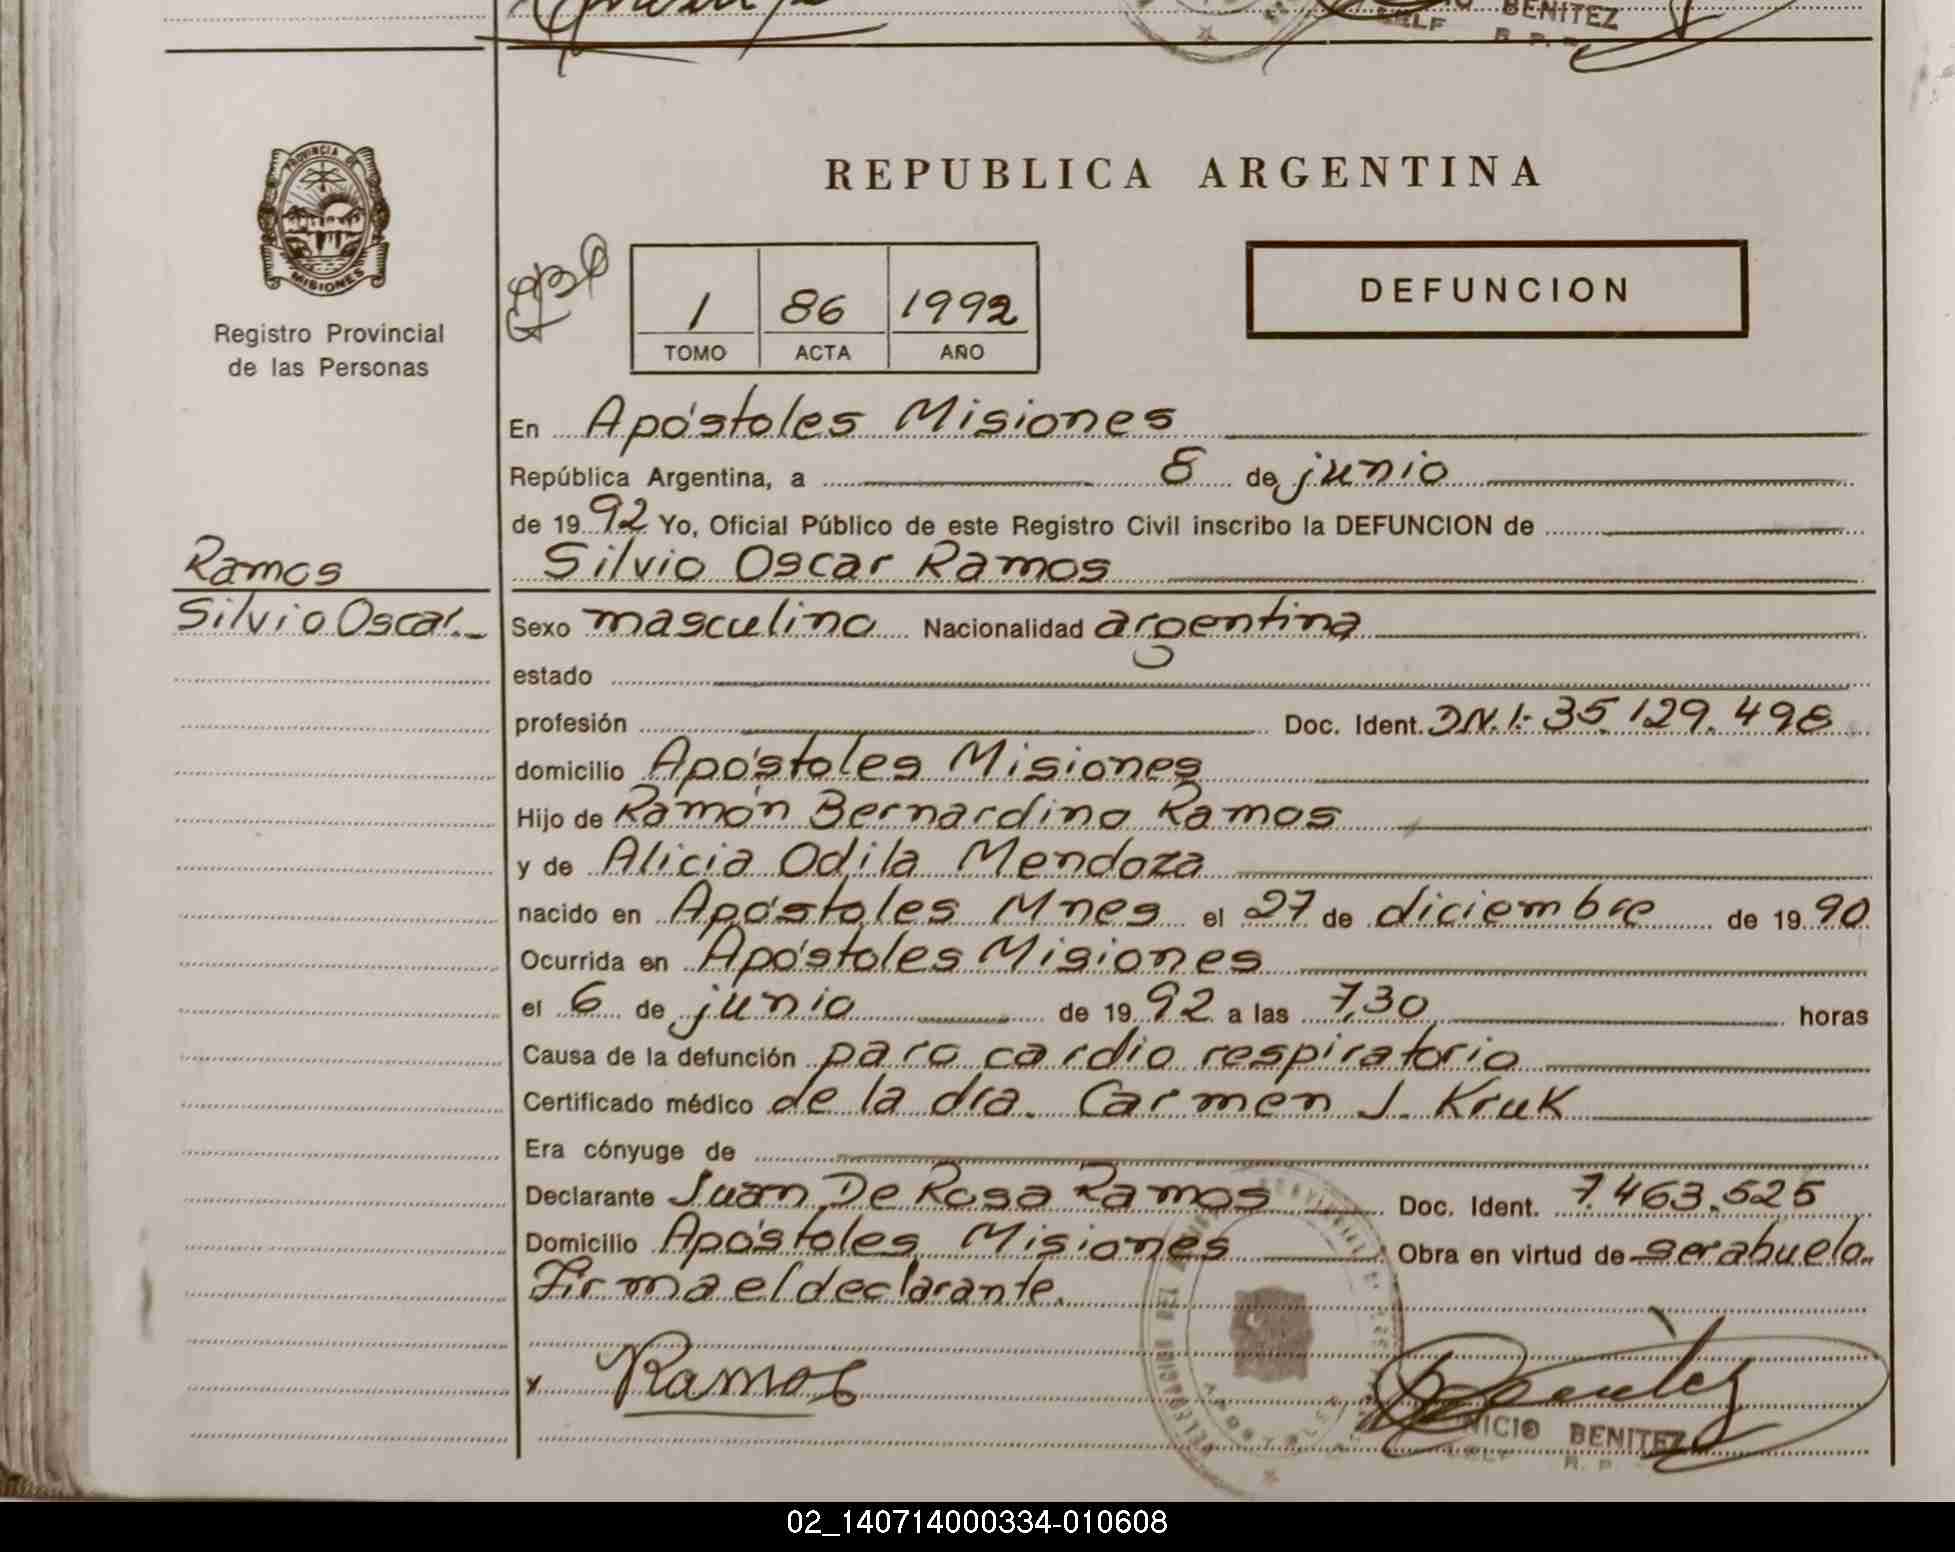 BENITEZ
REPUBLICA ARGENTINA
PROVINCIA DE
MISIONES
Registro Provincial
de las Personas
1 86 1992
TOMO ACTA AÑO
DEFUNCION
En Apóstoles Misiones
República Argentina, a 8 de junio
de 1992 Yo, Oficial Público de este Registro Civil inscribo la DEFUNCION de
Ramos
Silvio Oscar.
Silvio Oscar Ramos
Sexo masculino Nacionalidad argentina
estado
profesión Doc. Ident. D.N.I.- 35.129.498
domicilio Apóstoles Misiones
Hijo de Ramón Bernardino Ramos
y de Alicia Odila Mendoza
nacido en Apóstoles Mnes el 27 de diciembre de 1990
Ocurrida en Apóstoles Misiones
el 6 de junio de 1992 a las 7,30 horas
Causa de la defunción paro cardio respiratorio
Certificado médico de la dra. Carmen J. Kruk
Era cónyuge de
Declarante Juan De Rosa Ramos Doc. Ident. 7.463.525
Domicilio Apóstoles Misiones Obra en virtud de ser abuelo.
Firma el declarante.
x Ramos
NICIO BENITEZ
02_140714000334-010608